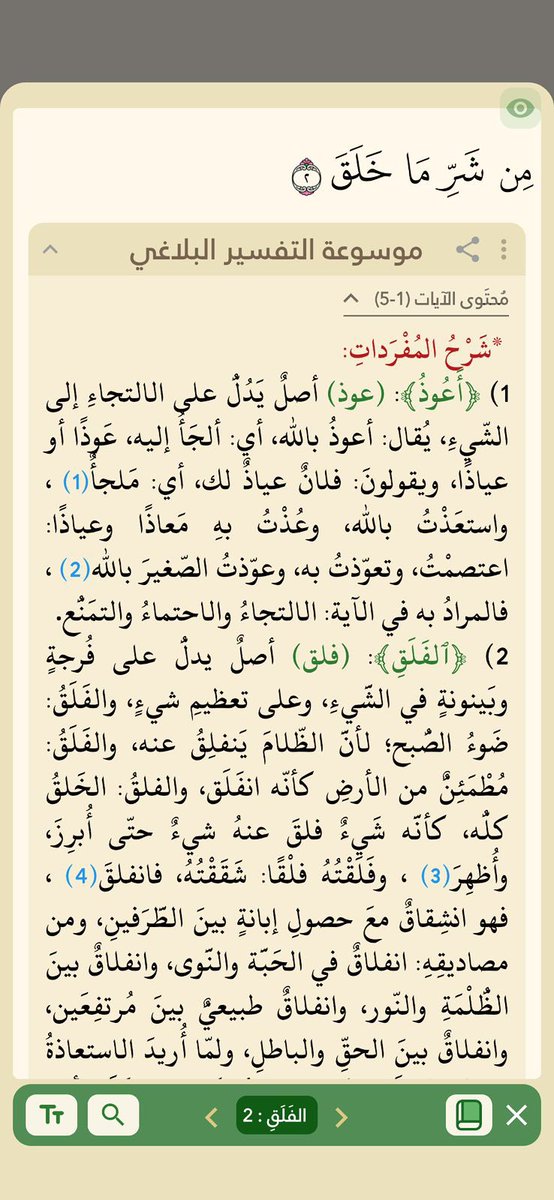 مِن شَرِّ مَا خَلَقَ ٢
موسوعة التفسير البلاغي
مُحتَوى الآيات (1-5)
*شَرْحُ المُفْرَداتِ:
1) ﴿أَعُوذُ﴾: (عوذ) أصلٌ يَدُلُّ على الالتجاءِ إلى
الشّيءِ، يُقال: أعوذُ بالله، أي: ألجَأُ إليه، عَوذًا أو
عياذًا، ويقولونَ: فلانٌ عياذٌ لك، أي: مَلجأٌ(1) ،
واستعَذْتُ بالله، وعُذْتُ بهِ مَعاذًا وعياذًا:
اعتصمْتُ، وتعوّذتُ به، وعوّذتُ الصّغيرَ بالله(2) ،
فالمرادُ به في الآية: الالتجاءُ والاحتماءُ والتمَنُّع.
2) ﴿ٱلفَلَقِ﴾: (فلق) أصلٌ يدلُّ على فُرجةٍ
وبَينونةٍ في الشّيءِ، وعلى تعظيمِ شيءٍ، والفَلَقُ:
ضَوءُ الصُّبح؛ لأنّ الظّلامَ يَنفلِقُ عنه، والفَلَقُ:
مُطْمَئِنٌّ من الأرضِ كأنّه انفَلَق، والفلقُ: الخَلقُ
كلُّه، كأنّه شَيءٌ فلقَ عنهُ شيءٌ حتّى أُبرِزَ،
وأُظهِرَ(3) ، وفَلَقْتُهُ فلْقًا: شَقَقْتُهُ، فانفلقَ(4) ،
فهو انشِقاقٌ معَ حصولِ إبانةٍ بينَ الطّرَفينِ، ومن
مصاديقِهِ: انفلاقٌ في الحَبّة والنّوى، وانفلاقٌ بينَ
الظُّلْمَةِ والنّور، وانفلاقٌ طبيعيٌّ بينَ مُرتفِعَين،
وانفلاقٌ بينَ الحقِّ والباطلِ، ولمّا أُريدَ الاستعاذةُ
الفَلَقِ : 2
TT